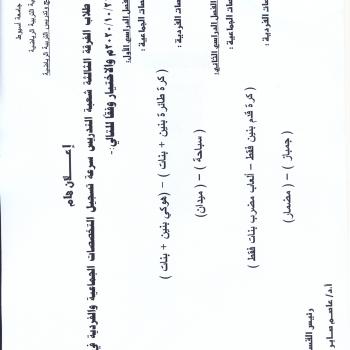 جامعة أسيوط
كلية التربية الرياضية
إعـــلان هام
طلاب الفرقة الثالثة شعبة التدريس سرعة تسجيل التخصصات الجماعية والفردية في
٢٠٢٠/١٠/٢ م والاختيار وفقا للتالي:-
الفصل الدراسي الأول:
الجماعية :
( كرة طائرة بنين + بنات ) – (هوكي بنين + بنات )
الفردية :
( سباحة ) – ( ميدان)
الفصل الدراسي الثاني:
الجماعية :
( كرة قدم بنين فقط – ألعاب مضرب بنات فقط )
الفردية :
( جمباز ) – ( مضمار)
رئيس القسم
أ.د/ عاصم صابر